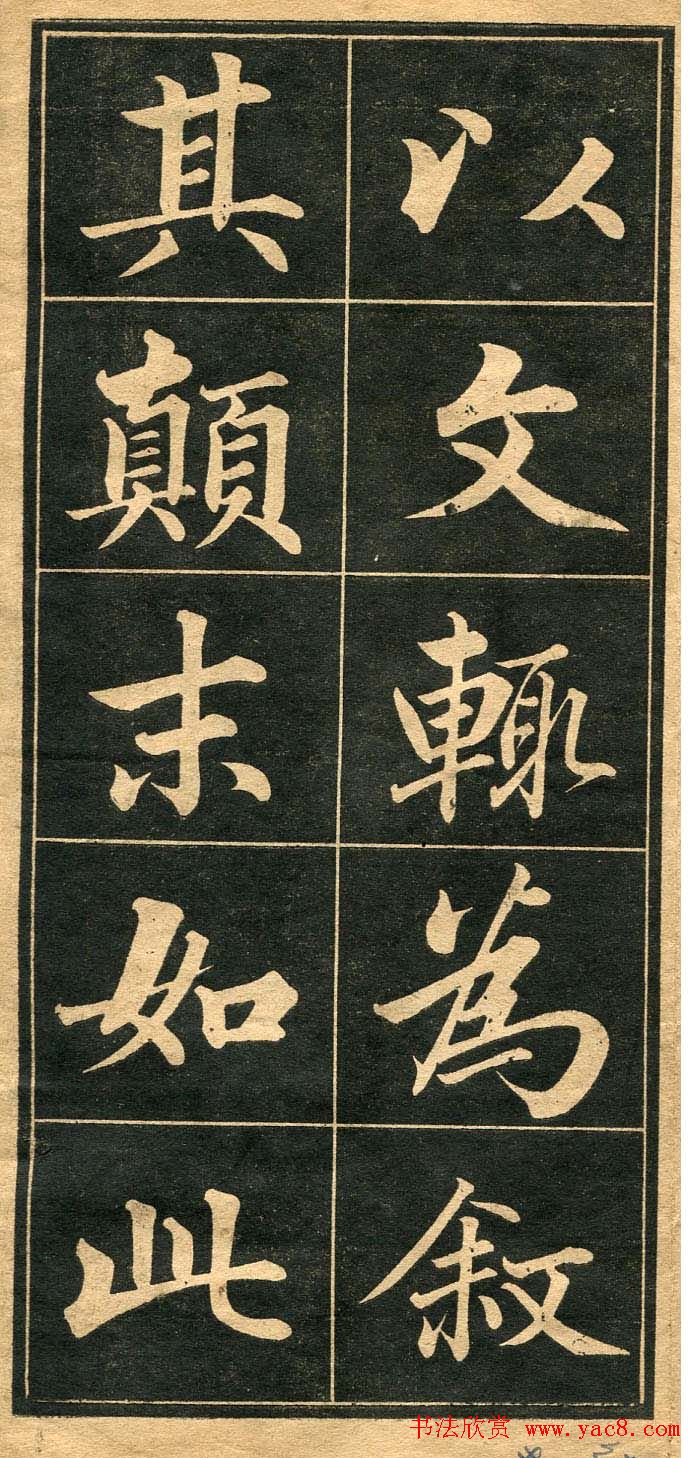 以文輙為叙
其顛末如此
书法欣赏 www.yac8.com